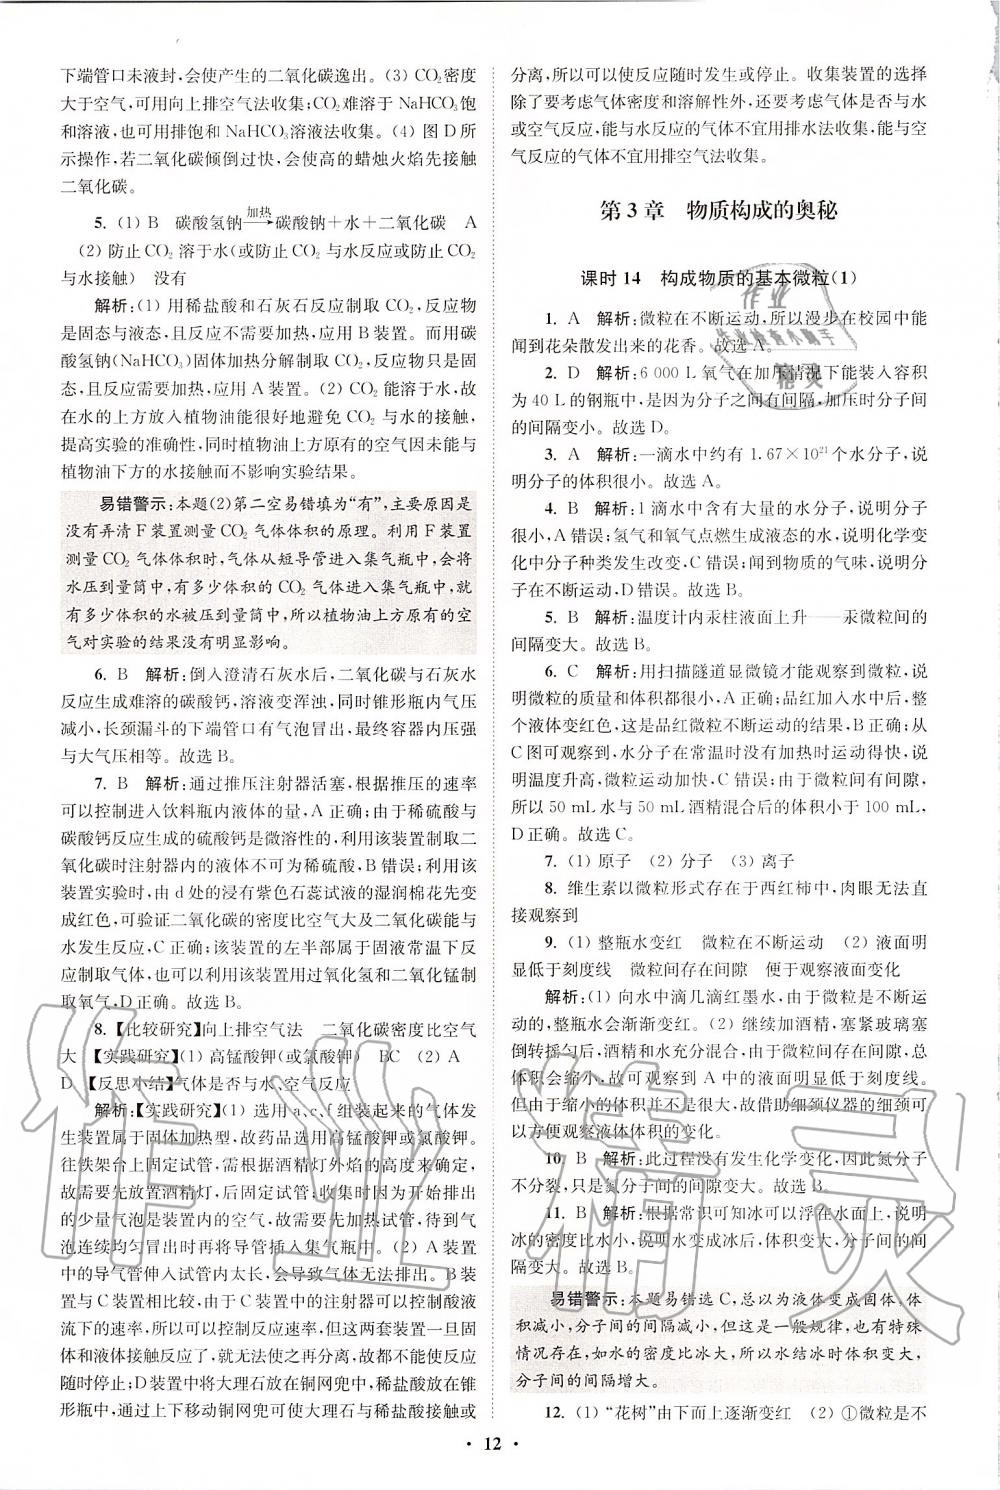 下端管口未液封,会使产生的二氧化碳逸出。(3) CO₂密度
大于空气,可用向上排空气法收集;CO₂难溶于 NaHCO₃饱
和溶液,也可用排饱和 NaHCO₃溶液法收集。(4) 图 D 所
示操作,若二氧化碳倾倒过快,会使高的蜡烛火焰先接触
二氧化碳。
5. (1) B 碳酸氢钠 加热→ 碳酸钠+水+二氧化碳 A
(2) 防止 CO₂ 溶于水(或防止 CO₂ 与水反应或防止 CO₂
与水接触) 没有
解析:(1) 用稀盐酸和石灰石反应制取 CO₂,反应物
是固态与液态,且反应不需要加热,应用 B 装置。而用碳
酸氢钠(NaHCO₃)固体加热分解制取 CO₂,反应物只是固
态,且反应需要加热,应用 A 装置。(2) CO₂ 能溶于水,故
在水的上方放入植物油能很好地避免 CO₂ 与水的接触,
提高实验的准确性,同时植物油上方原有的空气因未能与
植物油下方的水接触而不影响实验结果。
易错警示:本题(2)第二空易错填为“有”,主要原因是
没有弄清 F 装置测量 CO₂ 气体体积的原理。利用 F 装置
测量 CO₂ 气体体积时,气体从短导管进入集气瓶中,会将
水压到量筒中,有多少体积的 CO₂ 气体进入集气瓶中,就
有多少体积的水被压到量筒中,所以植物油上方原有的空
气对实验的结果没有明显影响。
6. B 解析:倒入澄清石灰水后,二氧化碳与石灰水
反应生成难溶的碳酸钙,溶液变浑浊,同时锥形瓶内气压
减小,长颈漏斗的下端管口有气泡冒出,最终容器内压强
与大气压相等。故选 B。
7. B 解析:通过推压注射器活塞,根据推压的速率
可以控制进入饮料瓶内液体的量,A 正确;由于稀硫酸与
碳酸钙反应生成的硫酸钙是微溶性的,利用该装置制取二
氧化碳时注射器内的液体不可为稀硫酸,B 错误;利用该
装置实验时,由 d 处的浸有紫色石蕊试液的湿润棉花先变
成红色,可验证二氧化碳的密度比空气大及二氧化碳能与
水发生反应,C 正确;该装置的左半部属于固液常温下反
应制取气体,也可以利用该装置用过氧化氢和二氧化锰制
取氧气,D 正确。故选 B。
8. 【比较研究】向上排空气法 二氧化碳密度比空气
大 【实践研究】(1) 高锰酸钾(或氯酸钾) BC (2) A
D 【反思小结】气体是否与水、空气反应
解析:【实践研究】(1) 选用 a、c、f 组装起来的气体发
生装置属于固体加热型,故药品选用高锰酸钾或氯酸钾。
往铁架台上固定试管,需根据酒精灯外焰的高度来确定,
故需要先放置酒精灯,后固定试管;收集时因开始排出
的少量气泡是装置内的空气,故需要先加热试管,待到气
泡连续均匀冒出时再将导管插入集气瓶中。(2) A 装置
中的导气管伸入试管内太长,会导致气体无法排出。B 装
置与 C 装置相比较,由于 C 装置中的注射器可以控制酸液
流下的速率,所以可以控制反应速率,但这两个装置一旦固
体和液体接触反应了,就无法使之再分离,故都不能使反应
随时停止;D 装置中将大理石放在铜网兜中,稀盐酸在锥
形瓶中,通过上下移动铜网兜可使大理石与稀盐酸接触或
分离,所以可以使反应随时发生或停止。收集装置的选择
除了要考虑气体密度和溶解性外,还要考虑气体是否与水
或空气反应,能与水反应的气体不宜用排水法收集,能与空
气反应的气体不宜用排空气法收集。
第 3 章 物质构成的奥秘
课时 14 构成物质的基本微粒(1)
1. A 解析:微粒在不断运动,所以漫步在校园中能
闻到花朵散发出来的花香。故选 A。
2. D 解析:6 000 L 氧气在加压情况下能装入容积
为 40 L 的钢瓶中,是因为分子之间有间隔,加压时分子间
的间隔变小。故选 D。
3. A 解析:一滴水中约有 1.67×10²¹个水分子,说
明分子的体积很小。故选 A。
4. B 解析:1 滴水中含有大量的水分子,说明分子
很小,A 错误;氢气和氧气点燃生成液态的水,说明化学变
化中分子种类发生改变,B 正确;闻到物质的气味,说明分
子在不断运动,D 错误。故选 B。
5. B 解析:温度计内汞柱液面上升——汞微粒间的
间隔变大。故选 B。
6. C 解析:用扫描隧道显微镜才能观察到微粒,说
明微粒的质量和体积都很小,A 正确;品红加入水中后,整
个液体变红色,这是品红微粒不断运动的结果,B 正确;从
C 图可观察到,水分子在常温时没有加热时运动得快,说
明温度升高,微粒运动加快,C 错误;由于微粒间有间隙,
所以 50 mL 水与 50 mL 酒精混合后的体积小于 100 mL,
D 正确。故选 C。
7. (1) 原子 (2) 分子 (3) 离子
8. 维生素以微粒形式存在于西红柿中,肉眼无法直
接观察到
9. (1) 整瓶水变红 微粒在不断运动 (2) 液面明
显低于刻度线 微粒间存在间隙 便于观察液面变化
解析:(1) 向水中滴几滴红墨水,由于微粒是不断运
动的,整瓶水会渐渐变红。(2) 继续加酒精,塞紧玻璃塞
倒转摇匀后,酒精和水充分混合,由于微粒间存在间隙,总
体积会缩小,故可观察到 A 中的液面明显低于刻度线。
但由于缩小的体积并不是很大,故借助细颈仪器的细颈可
以方便观察液体体积的变化。
10. B 解析:此过程没有发生化学变化,因此氮分子
不分裂,只是氮分子间的间隙变大。故选 B。
11. B 解析:根据常识可知冰可以浮在水面上,说明
冰的密度比水小,说明水变成冰后,体积变大,分子间的间
隔变大。故选 B。
易错警示:本题易错选 C,总以为液体变成固体,体
积减小,分子间的间隔减小,但这是一般规律,也有特殊
情况存在,如水的密度比冰大,所以水结冰时体积变大,
分子间的间隔增大。
12. (1) “花树”由下而上逐渐变红 (2) ①微粒是不
• 12 •
作业精灵
作业
作业检查小助手
精灵